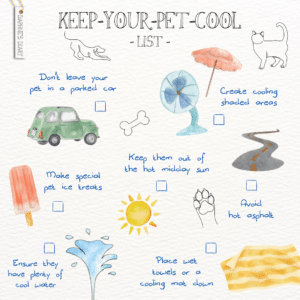 KEEP-YOUR-PET-COOL
- LIST -
Don't leave your
pet in a parked car
Create cooling
shaded areas
Keep them out of
the hot midday sun
Make special
pet ice treats
Avoid
hot asphalt
Ensure they
have plenty of
cool water
Place wet
towels or a
cooling mat down